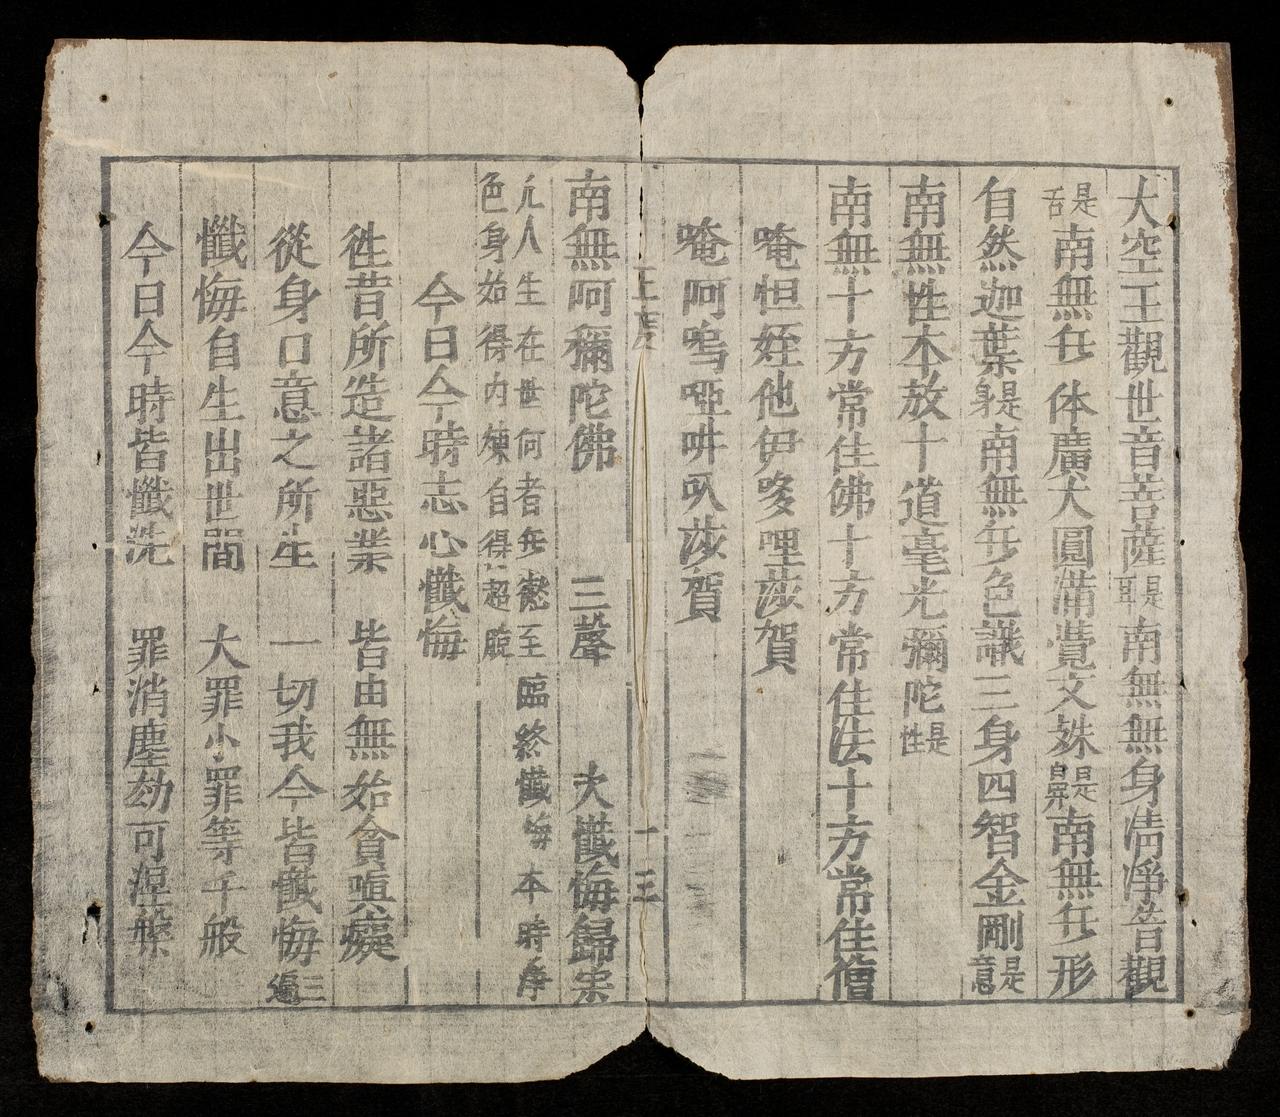 大空王觀世音菩薩是耳南無無身清淨音觀
是舌南無無体廣大圓滿覺文殊是鼻南無無形
自然迦葉是身南無無色識三身四智金剛是意
南無性本放十道毫光彌陀是性
南無十方常住佛十方常住法十方常住僧
唵怛姪他伊哆哩莎賀
唵呵嗚啞吽㕧莎賀
一三
南無呵彌陀佛 三聲 大懺悔歸宗
亢人生在世何者無愆至臨終懺悔本時孝
色身始得內煉自得超脫
今日今時志心懺悔
徃昔所造諸惡業 皆由無始貪嗔癡
從身口意之所生 一切我今皆懺悔三遍
懺悔自生出世間 大罪小罪等千般
今日今時皆懺洗 罪消塵劫可涅槃